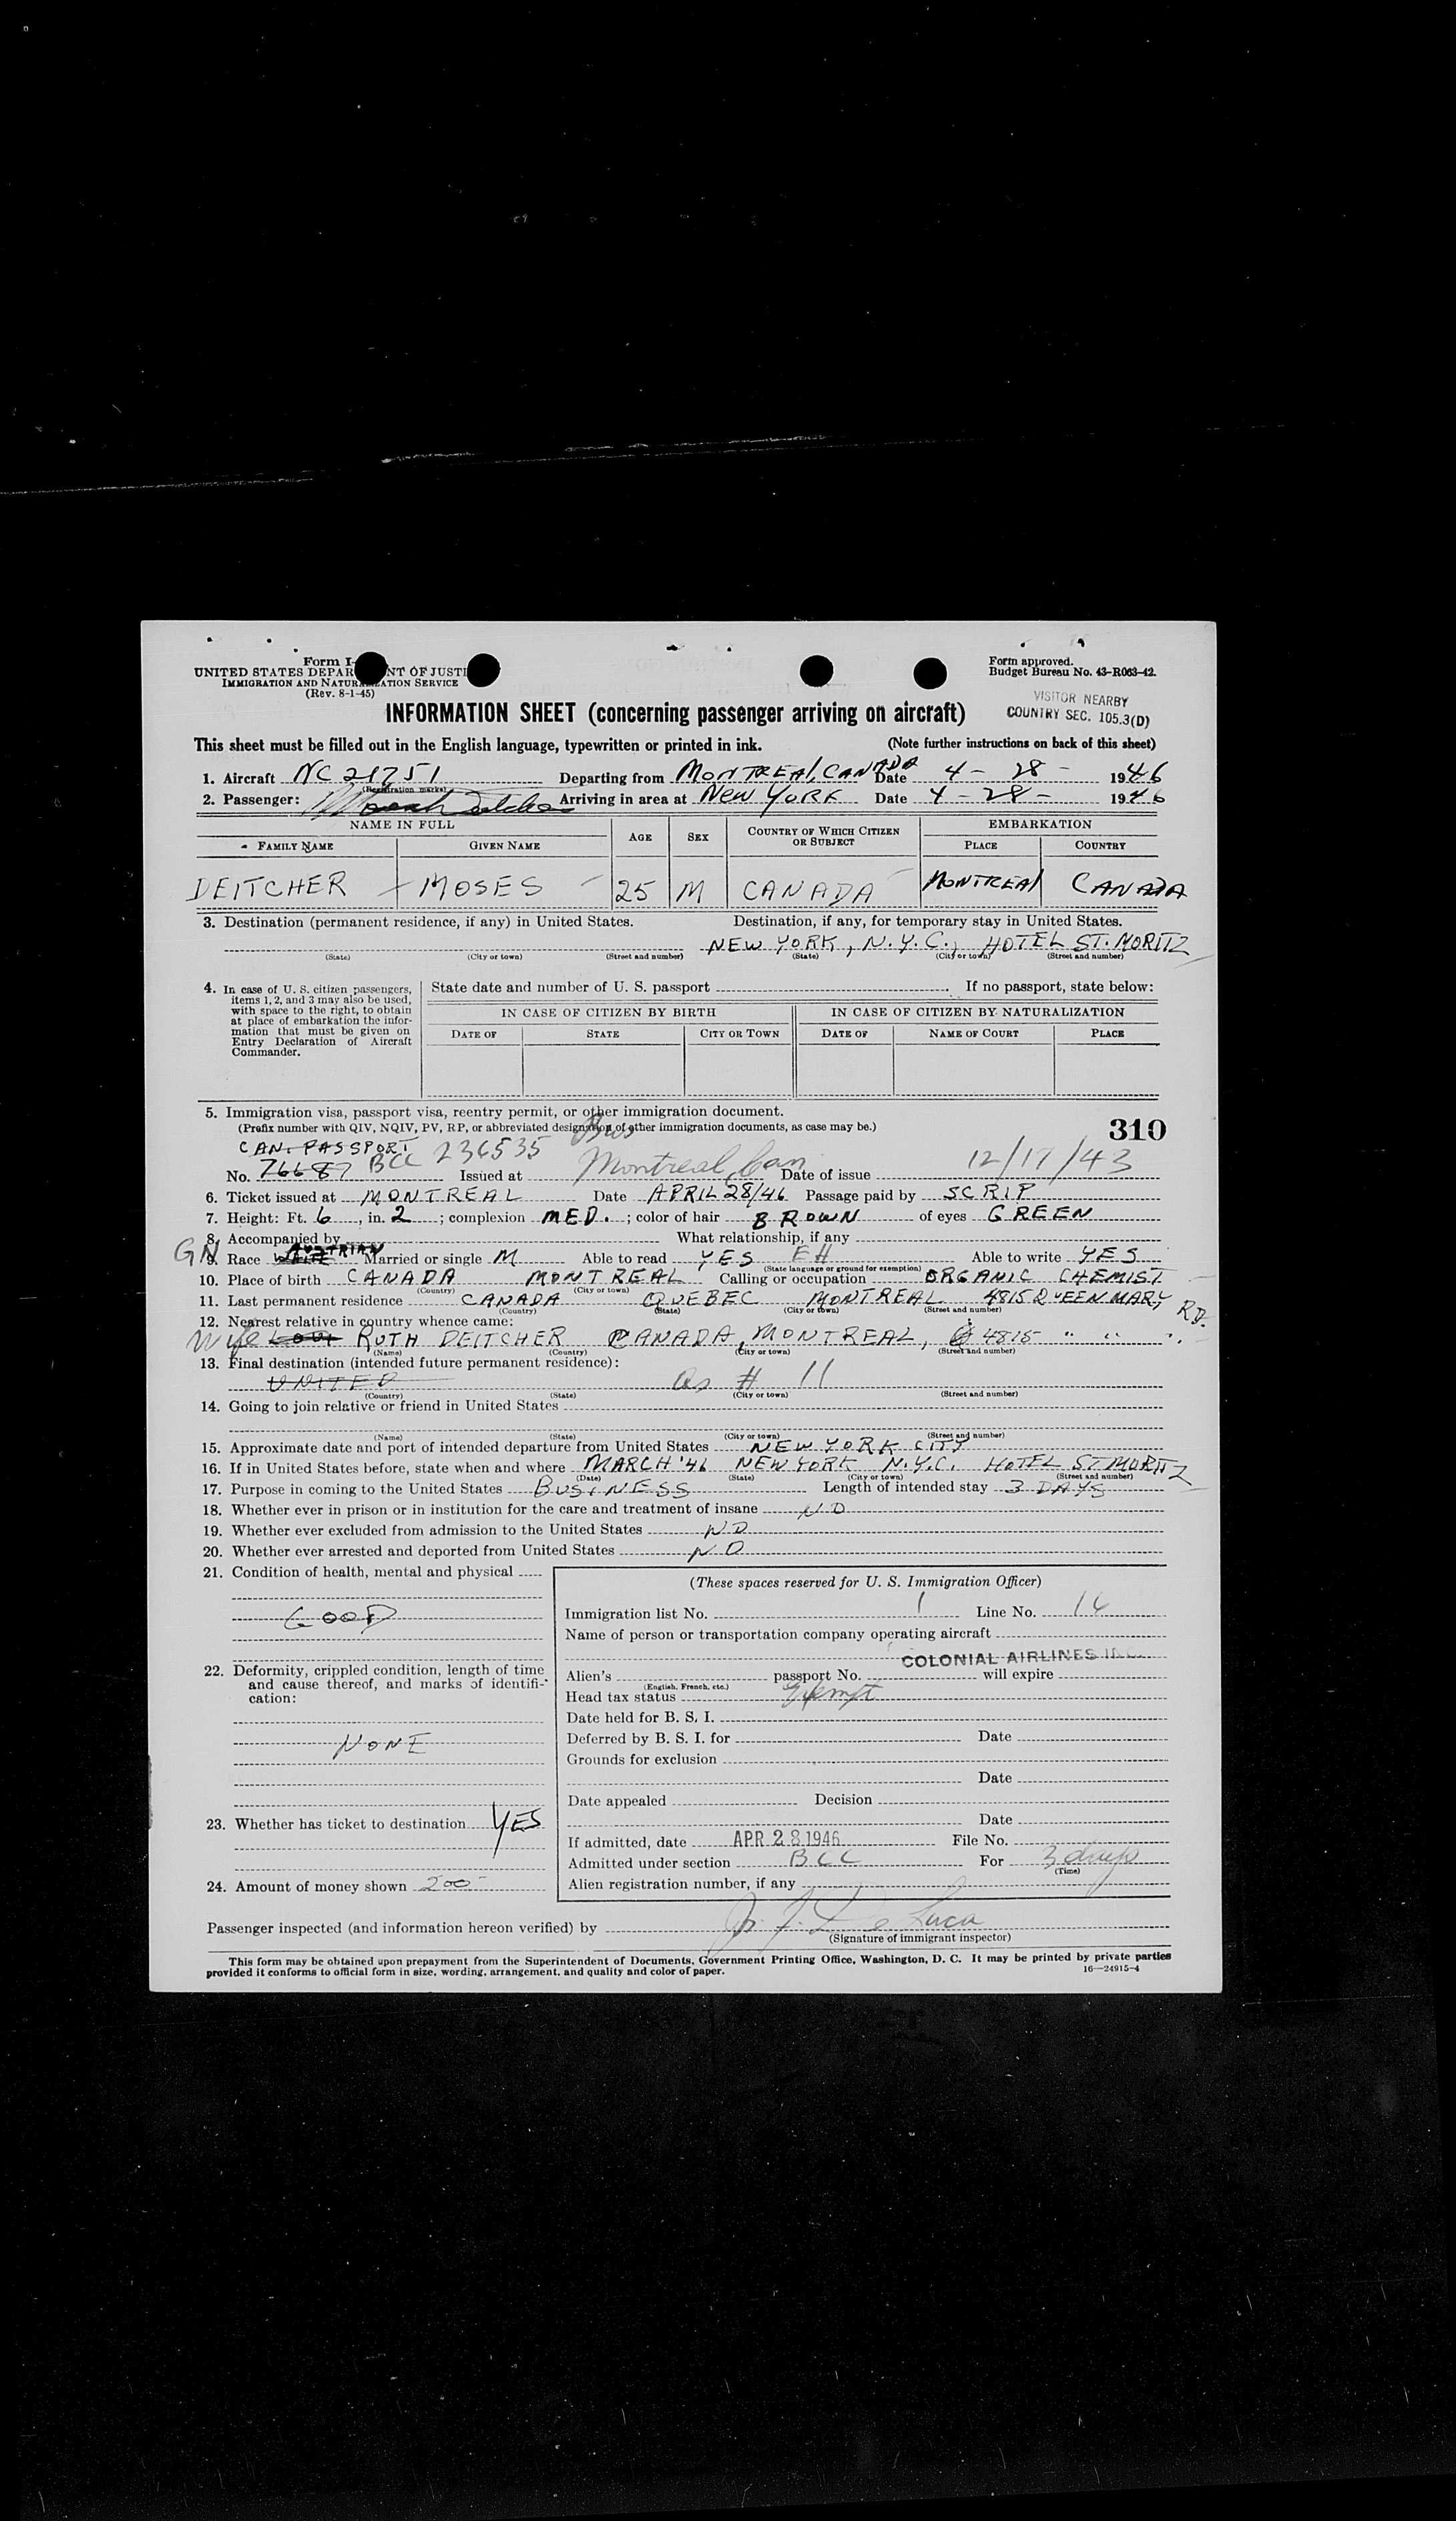 Form I-
UNITED STATES DEPAR NT OF JUSTI
IMMIGRATION AND NATURALIZATION SERVICE
(Rev. 8-1-45)
Form approved.
Budget Bureau No. 43-R063-42.
VISITOR NEARBY
COUNTRY SEC. 105.3(D)
INFORMATION SHEET (concerning passenger arriving on aircraft)
This sheet must be filled out in the English language, typewritten or printed in ink. (Note further instructions on back of this sheet)
1. Aircraft NC 21751 Departing from MONTREAL, CANADA Date 4-28- 1946
(Registration marks)
2. Passenger: Arriving in area at NEW YORK Date 4-28- 1946
NAME IN FULL AGE SEX COUNTRY OF WHICH CITIZEN OR SUBJECT EMBARKATION
FAMILY NAME GIVEN NAME PLACE COUNTRY
DEITCHER MOSES 25 M CANADA MONTREAL CANADA
3. Destination (permanent residence, if any) in United States. Destination, if any, for temporary stay in United States.
NEW YORK, N.Y.C., HOTEL ST. MORITZ
(State) (City or town) (Street and number) (State) (City or town) (Street and number)
4. In case of U. S. citizen passengers, items 1, 2, and 3 may also be used, with space to the right, to obtain at place of embarkation the information that must be given on Entry Declaration of Aircraft Commander.
State date and number of U. S. passport If no passport, state below:
IN CASE OF CITIZEN BY BIRTH IN CASE OF CITIZEN BY NATURALIZATION
DATE OF STATE CITY OR TOWN DATE OF NAME OF COURT PLACE
5. Immigration visa, passport visa, reentry permit, or other immigration document.
(Prefix number with QIV, NQIV, PV, RP, or abbreviated designation of other immigration documents, as case may be.)
310
CAN. PASSPORT
No. 76687 BCC 236535 Issued at Montreal, Can Date of issue 12/17/43
6. Ticket issued at MONTREAL Date APRIL 28/46 Passage paid by SCRIP
7. Height: Ft. 6, in. 2; complexion MED.; color of hair BROWN of eyes GREEN
8. Accompanied by What relationship, if any
GN
9. Race AUSTRIAN Married or single M Able to read YES EH Able to write YES
(State language or ground for exemption)
10. Place of birth CANADA MONTREAL Calling or occupation ORGANIC CHEMIST
(Country) (City or town)
11. Last permanent residence CANADA QUEBEC MONTREAL 4815 QUEEN MARY RD.
(Country) (State) (City or town) (Street and number)
12. Nearest relative in country whence came:
Wife RUTH DEITCHER CANADA, MONTREAL, 4815 " " "
(Name) (Country) (City or town) (Street and number)
13. Final destination (intended future permanent residence):
UNITED as # 11
(Country) (State) (City or town) (Street and number)
14. Going to join relative or friend in United States
(Name) (State) (City or town) (Street and number)
15. Approximate date and port of intended departure from United States NEW YORK CITY
16. If in United States before, state when and where MARCH '46 NEW YORK N.Y.C. HOTEL ST. MORITZ
(Date) (State) (City or town) (Street and number)
17. Purpose in coming to the United States BUSINESS Length of intended stay 3 DAYS
18. Whether ever in prison or in institution for the care and treatment of insane NO
19. Whether ever excluded from admission to the United States NO
20. Whether ever arrested and deported from United States NO
21. Condition of health, mental and physical
GOOD
22. Deformity, crippled condition, length of time and cause thereof, and marks of identification:
NONE
23. Whether has ticket to destination YES
24. Amount of money shown 200-
(These spaces reserved for U. S. Immigration Officer)
Immigration list No. 1 Line No. 16
Name of person or transportation company operating aircraft
COLONIAL AIRLINES INC.
Alien's passport No. will expire
(English, French, etc.)
Head tax status Exempt
Date held for B. S. I.
Deferred by B. S. I. for Date
Grounds for exclusion
Date
Date appealed Decision
Date
If admitted, date APR 28 1946 File No.
Admitted under section BCC For 3 days
(Time)
Alien registration number, if any
Passenger inspected (and information hereon verified) by De Luca
(Signature of immigrant inspector)
This form may be obtained upon prepayment from the Superintendent of Documents, Government Printing Office, Washington, D. C. It may be printed by private parties
provided it conforms to official form in size, wording, arrangement, and quality and color of paper.
16—24915-4